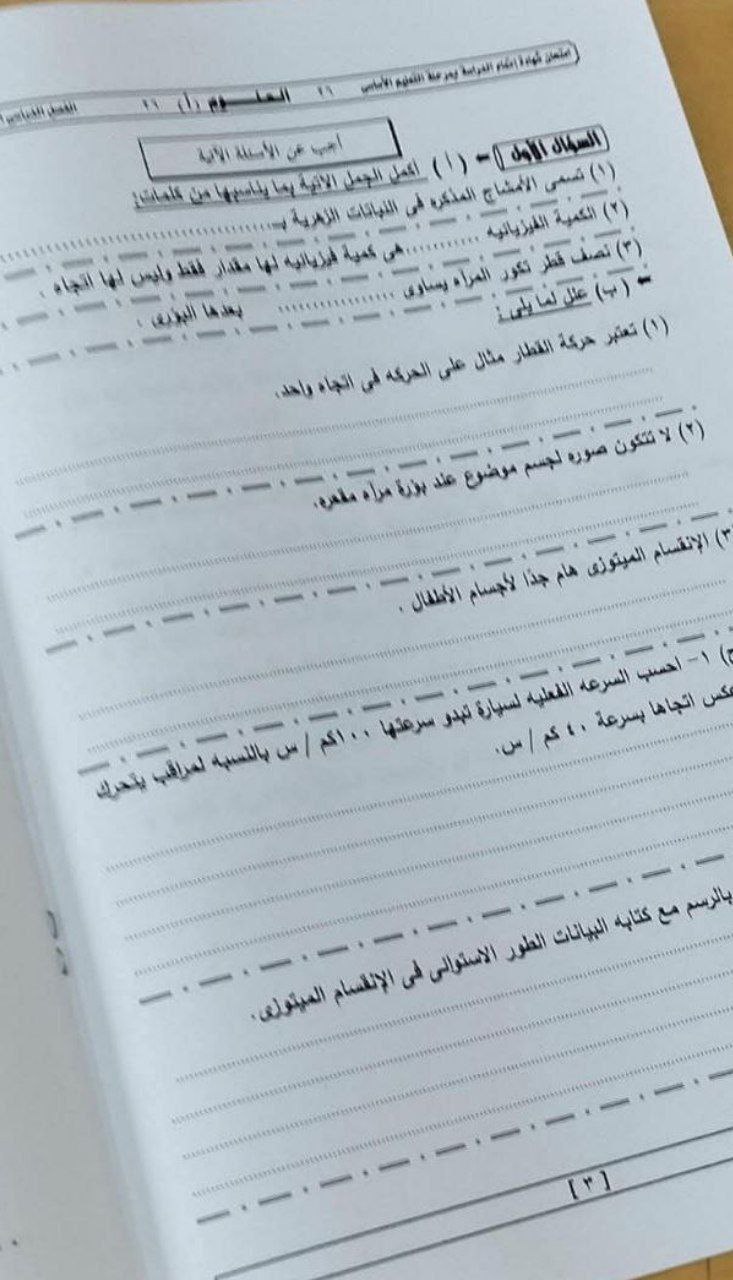 امتحان شهادة إتمام الدراسة بمرحلة التعليم الأساسي ٢٦ العلـــــوم (أ) ٢٦ الفصل الدراسي
أجب عن الأسئلة الآتية
السؤال الأول (أ) أكمل الجمل الآتية بما يناسبها من كلمات:
(١) تسمى الأمشاج المذكره فى النباتات الزهرية بـ....................
(٢) الكمية الفيزيائيه ............هى كمية فيزيائيه لها مقدار فقط وليس لها اتجاه .
(٣) نصف قطر تكور المرآه يساوى ................ بعدها البؤرى .
(ب) علل لما يلى :
(١) تعتبر حركة القطار مثال على الحركه فى اتجاه واحد.
(٢) لا تتكون صوره لجسم موضوع عند بؤرة مرآه مقعره.
٣) الإنقسام الميتوزى هام جدًا لأجسام الأطفال .
ج) ١- احسب السرعه الفعليه لسيارة تبدو سرعتها ١٠٠كم / س بالنسبه لمراقب يتحرك
عكس اتجاها بسرعة ٤٠ كم / س.
بالرسم مع كتابه البيانات الطور الاستوائى فى الإنقسام الميتوزى.
[ ٣ ]